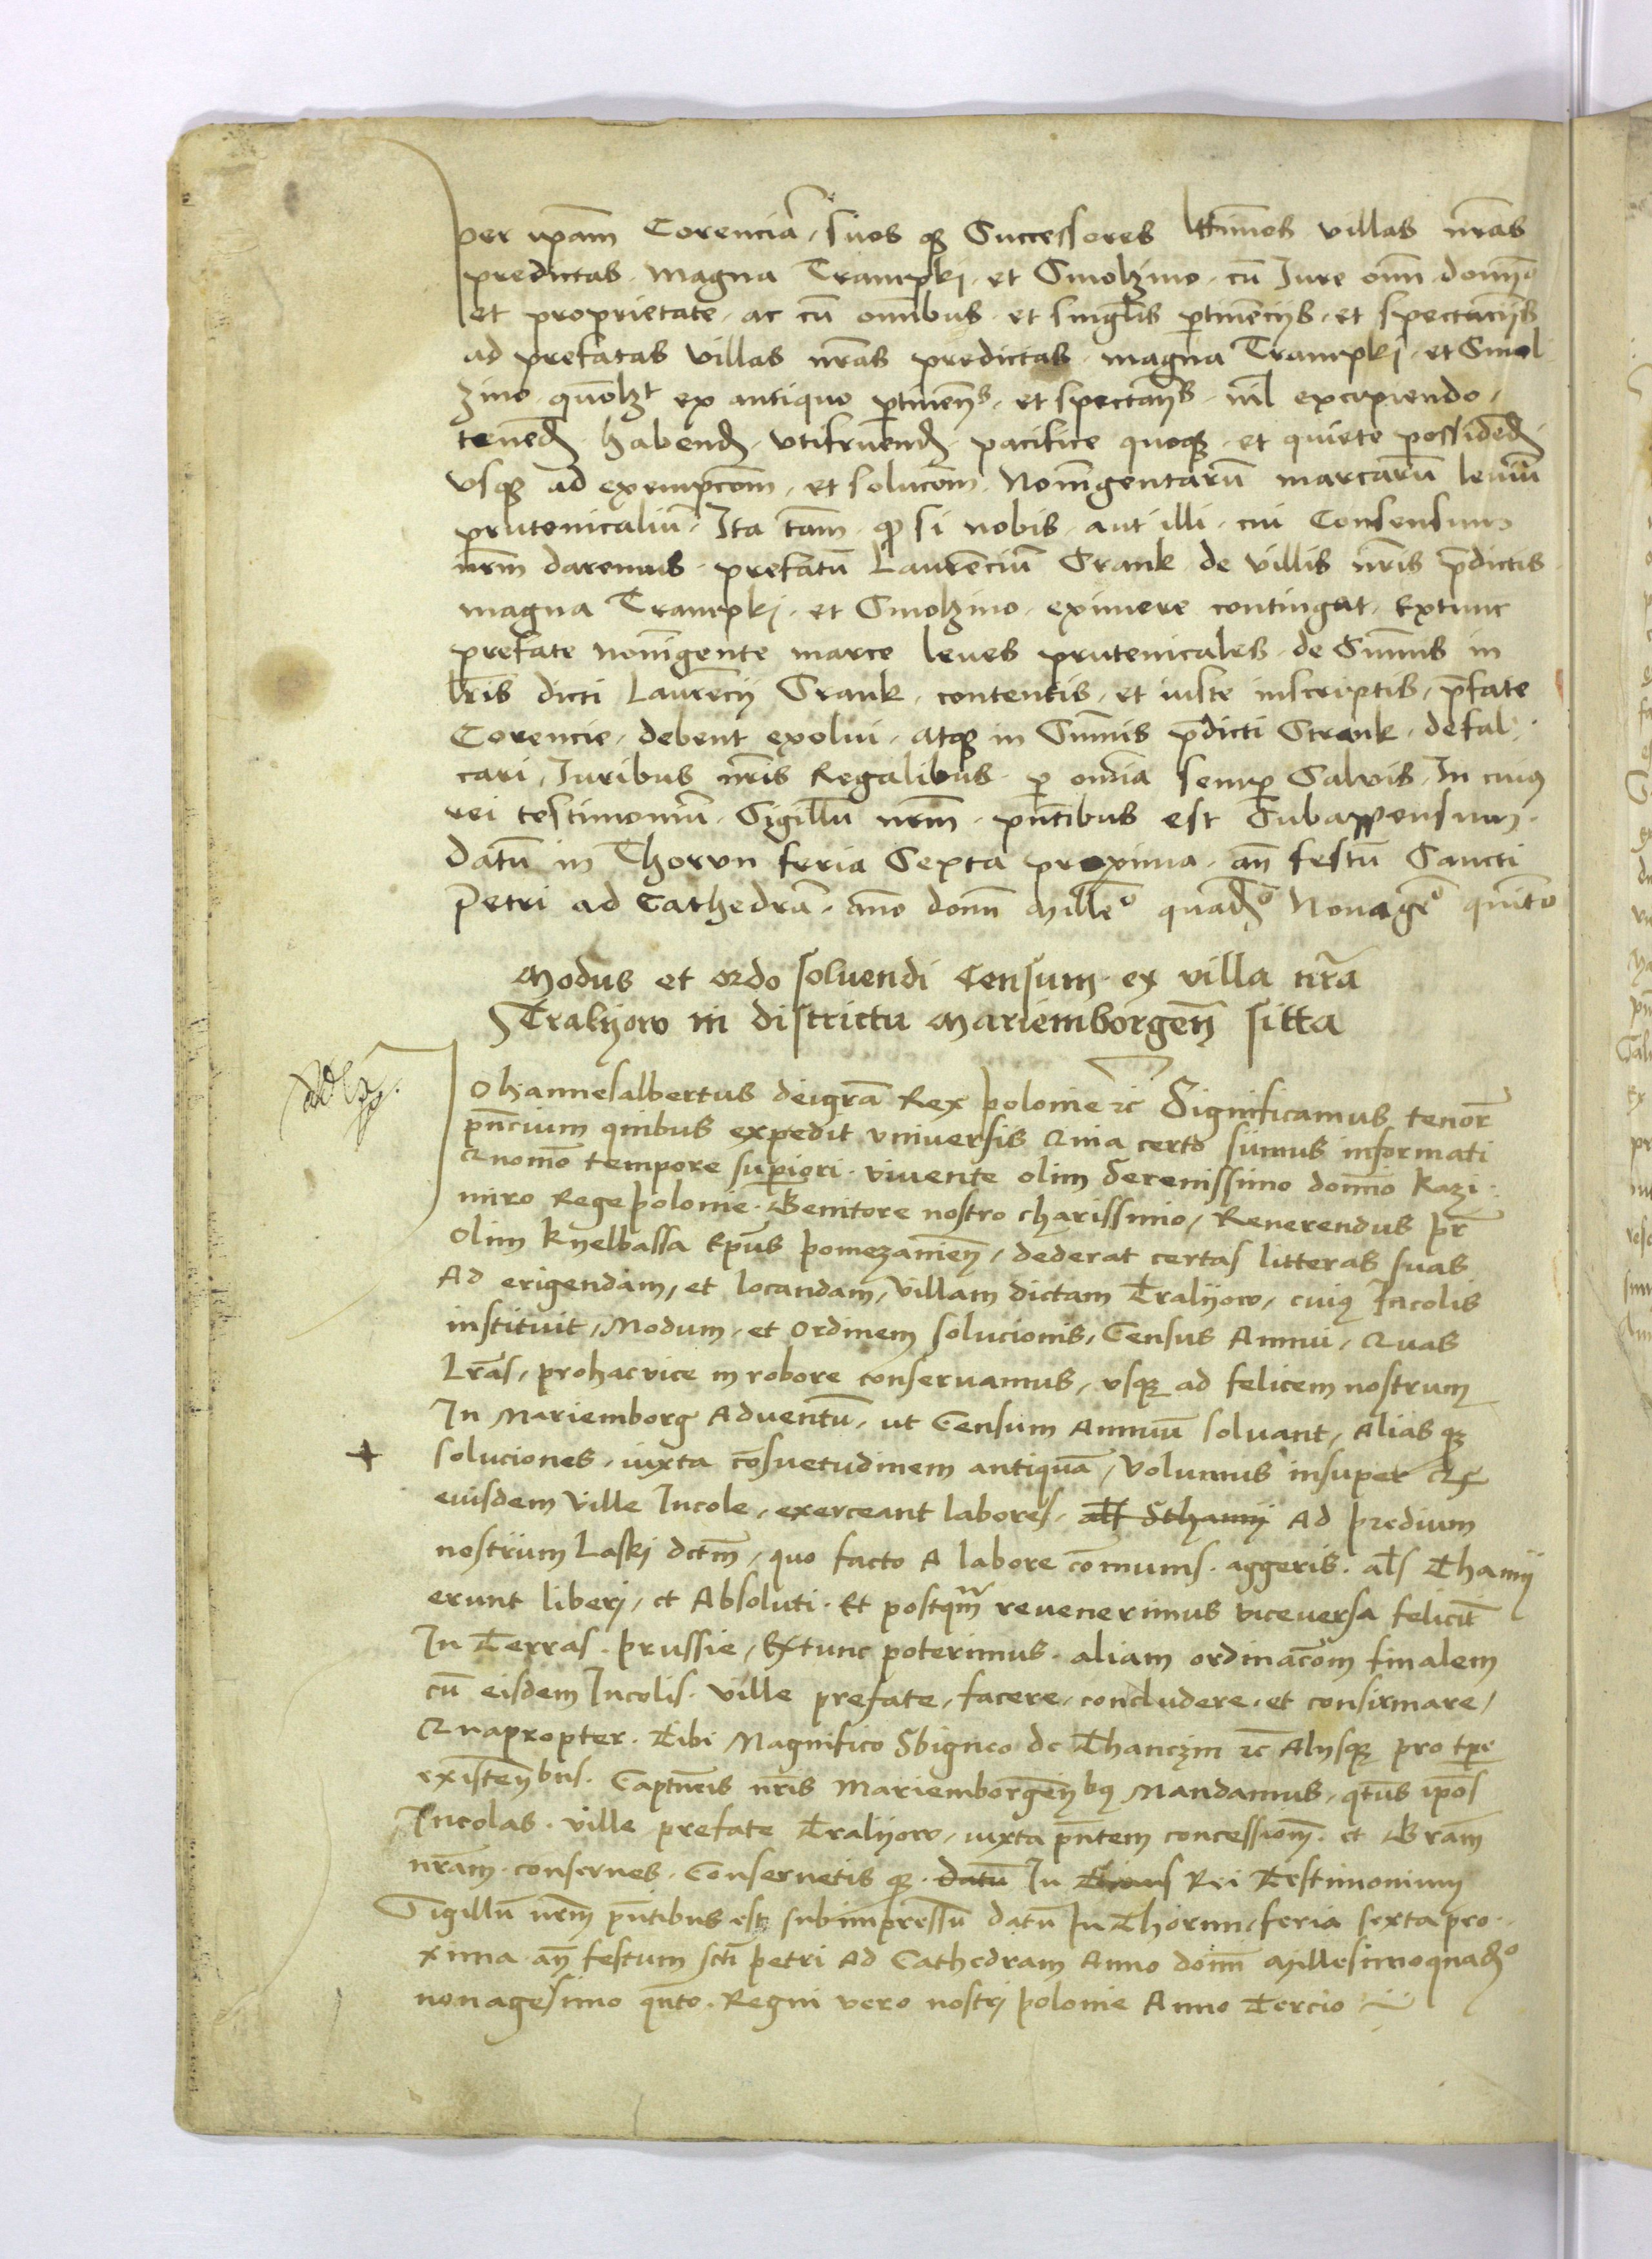 per ipam Corencia, suos qȝ Successores lttimos villas nras
predictas magna Trampki et Smolzino cu Jure omi domio
et proprietate ac cu omibus et singlis ptinecijs et spectacijs
ad prefatas villas nras predictas magna Trampki et Smol
zino quolzt ex antiquo ptinens et spectans nil excipiendo,
tened habend vtifruend pacifice quoqȝ et quiete possided
vsqȝ ad exempcom et solucom Noningentaru marcaru leuiu
prutenicaliu Ita tam qȝ si nobis aut illi cui Consensum
nrm daremus prefatu Laurenciu Crank de villis nris pdictis
magna Trampki et Smolzino eximere contingat, Extunc
prefate noningente marce leues prutenicales de Summis in
lris dicti Laurencij Crank contentis et iuste inscriptis, pfate
Corencie debent exolui atqȝ in Summis pdicti Crank defal
cari, Juribus nris Regalibus p omia semp Saluis, In cuiꝰ
rei testimoniu Sigillu nrm pntibus est Subappensum
Datu in Thorvn feria Sexta proxima an festu Sancti
Petri ad Cathedra ano domi Mille° quad° Nonage° quinto
Modus et ordo soluendi Censum ex villa nra
Tralyow in districtu Mariemborgen sitta
Johannesalbertus deigra Rex polonie ⁊c Significamus tenor
pncium quibus expedit vniuersis Quia certo sumus informati
Quomo tempore superiori viuente olim Serenissimo domino Kazi
miro Rege polonie Genitore nostro charissimo, Reuerendus pr
Olim Kyelbassa Epus pomezanien, dederat certas litteras suas
Ad erigendam, et locandam, villam dictam Tralyow, cuiꝰ Incolis
instituit, Modum, et Ordinem solucionis, Census Annui, Quas
Lras, prohac vice in robore conseruamus, vsqȝ ad felicem nostrum
In Mariemborg Aduentu, ut Censum Annuu soluant, Alias qȝ
soluciones, iuxta cosuetudinem antiqua, Volumus insuper Qȝ
eiusdem Ville Incole, exerceant labores, als Sthamy Ad predium
nostrum Laski dctm, quo facto A labore comunis aggeris als Thamy
erunt liberi, et Absoluti Et postqm reuenerimus viceuersa felicit
In Terras prussie, Extunc poterimus aliam ordinacom finalem
cu eisdem Incolis ville prefate, facere, concludere et confirmare,
Quapropter Tibi Magnifico Sbigneo de Thanczin ⁊c Alijsqȝ pro tpe
existenbus Captneis nris Mariemborgenbꝰ Mandamus, qtus ipos
Incolas ville prefate Tralyow, iuxta pntem concessiom et Gram
nram conserues Conseruetis qȝ datu In Cuius Rei Testimonium
Sigillu nrm pntibus est subimpressu datu In Thorun feria sexta pro
xima an festum scti petri Ad Cathedram Anno domi Millesimoquad°
nonagesimo qnto Regni vero nostri polonie Anno Tercio